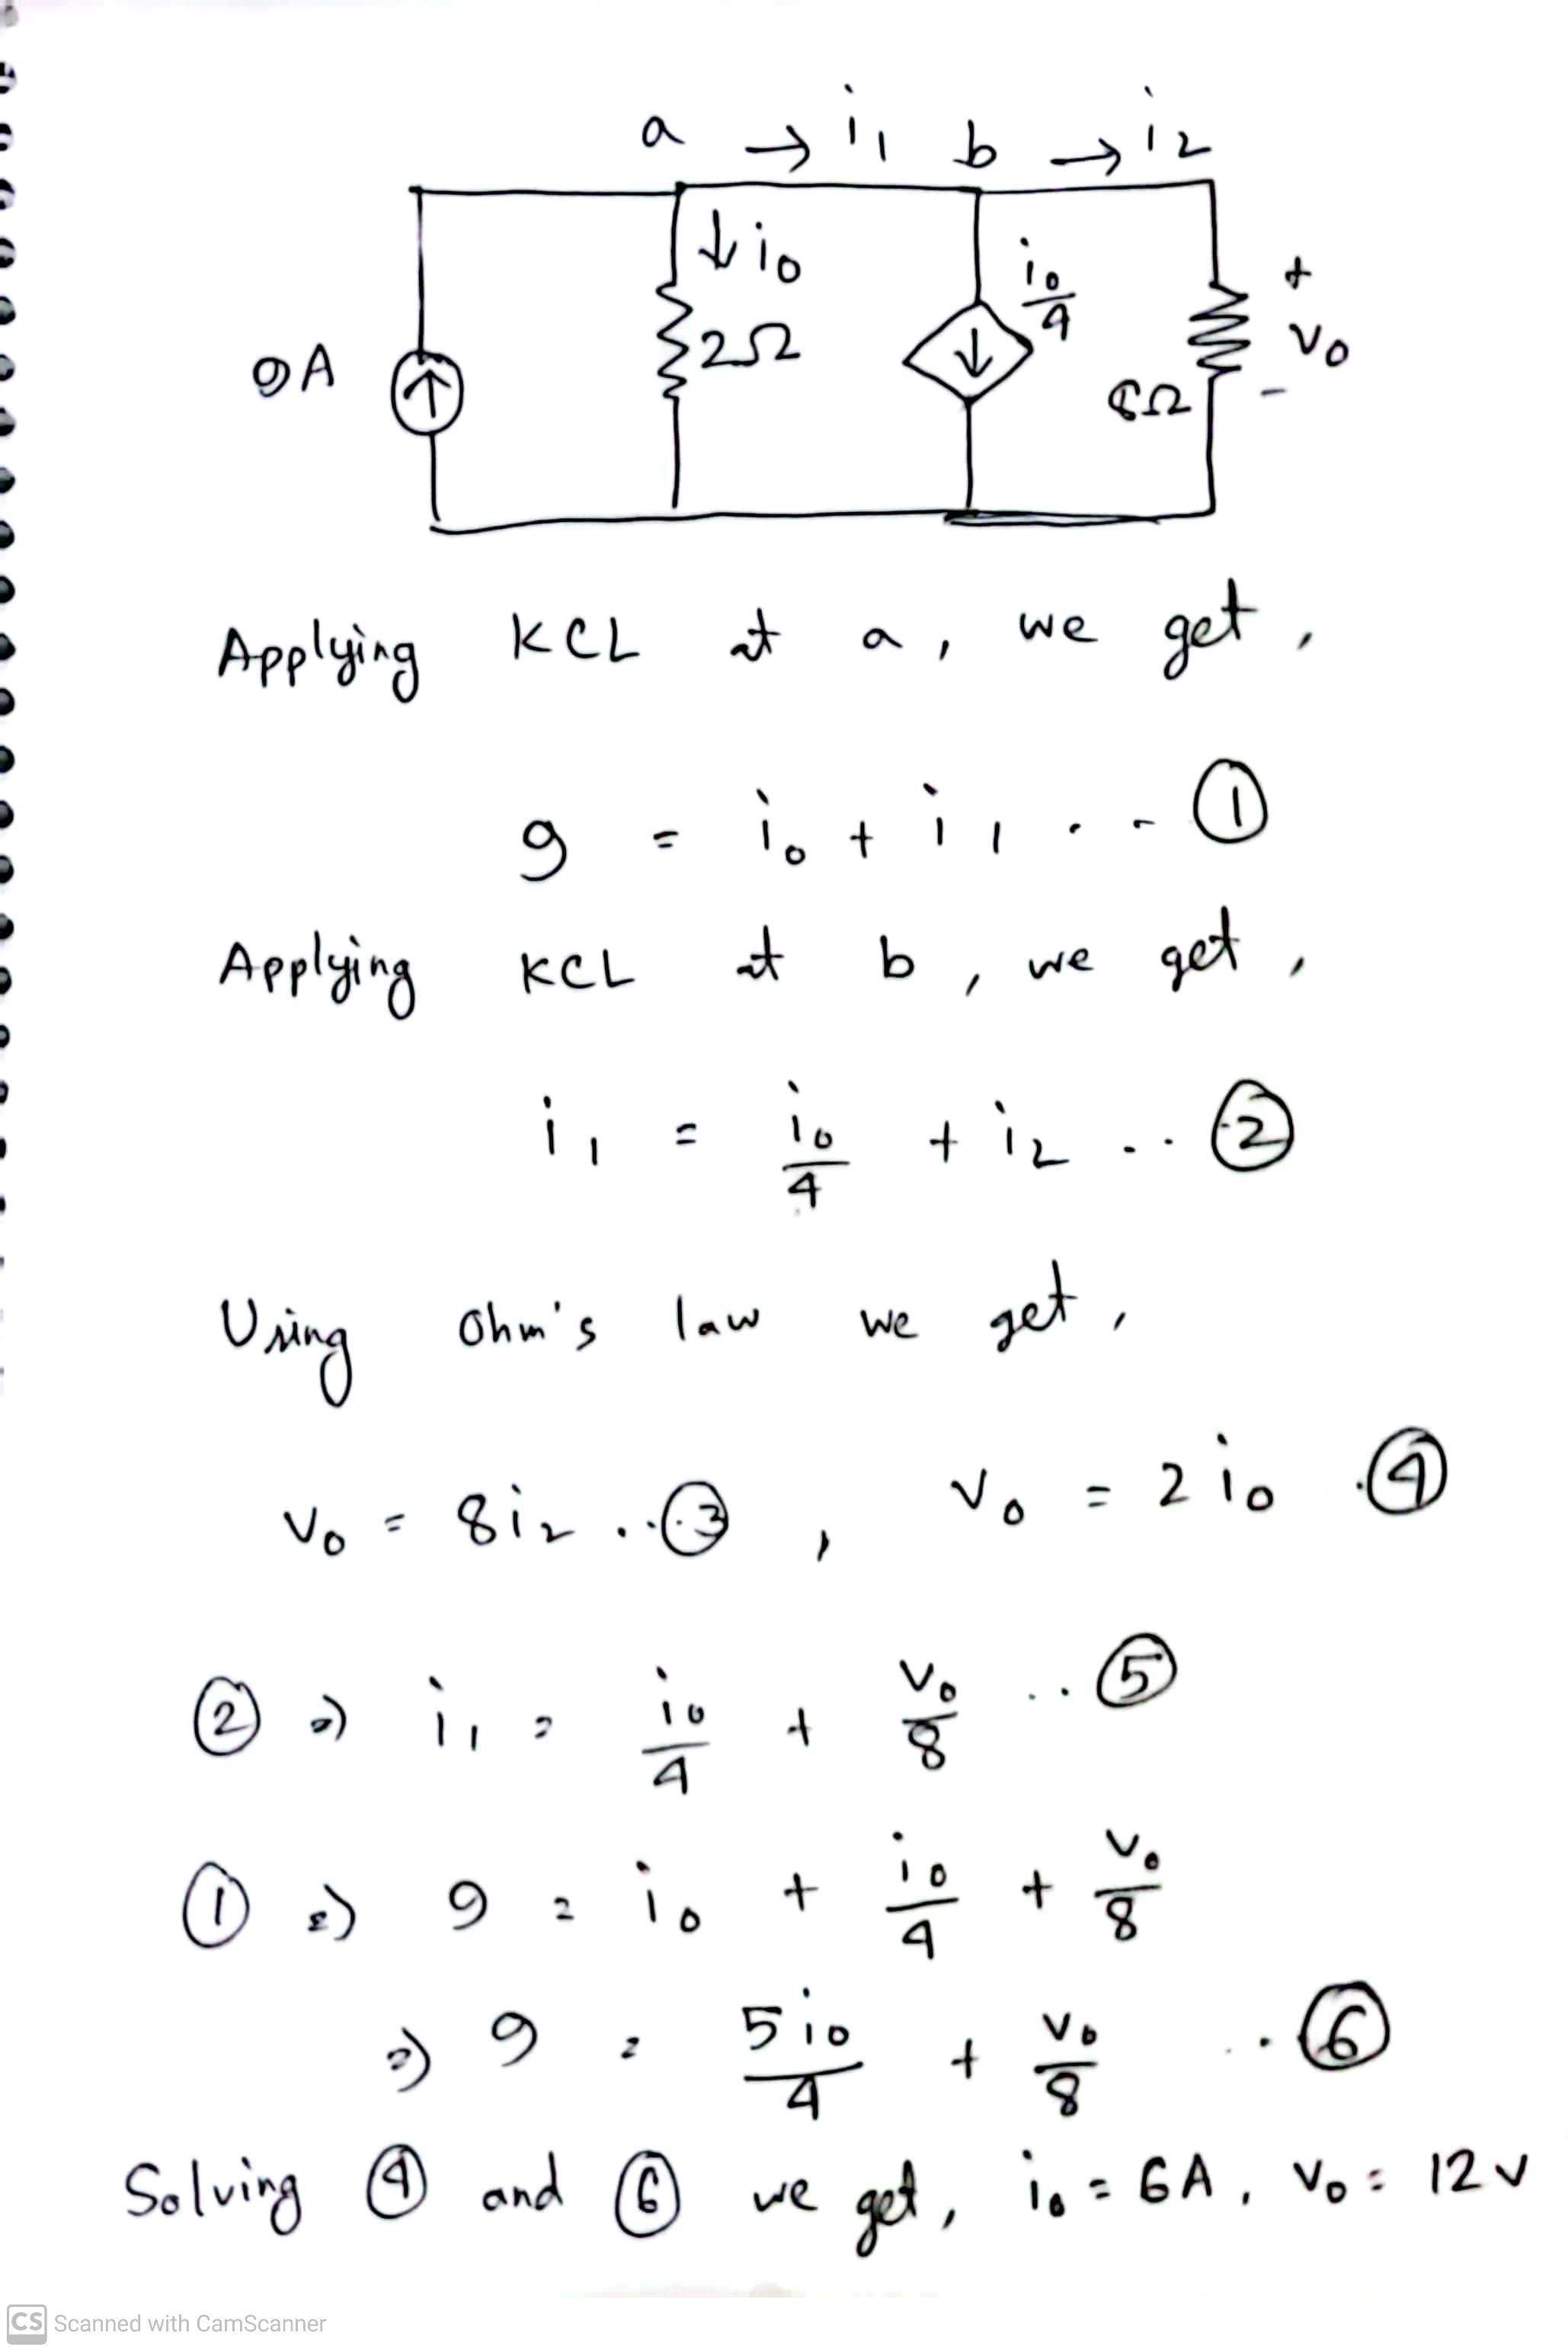 a → i₁ b → i₂
↓ i₀
i₀/4
+
9A
2Ω
v₀
8Ω
-
Applying KCL at a, we get,
9 = i₀ + i₁ .. ①
Applying KCL at b, we get,
i₁ = i₀/4 + i₂ .. ②
Using Ohm's law we get,
v₀ = 8i₂ ... ③ , v₀ = 2i₀ . ④
② ⇒ i₁ = i₀/4 + v₀/8 .. ⑤
① ⇒ 9 = i₀ + i₀/4 + v₀/8
⇒ 9 = 5i₀/4 + v₀/8 .. ⑥
Solving ④ and ⑥ we get, i₀ = 6A, v₀ = 12v
CS Scanned with CamScanner